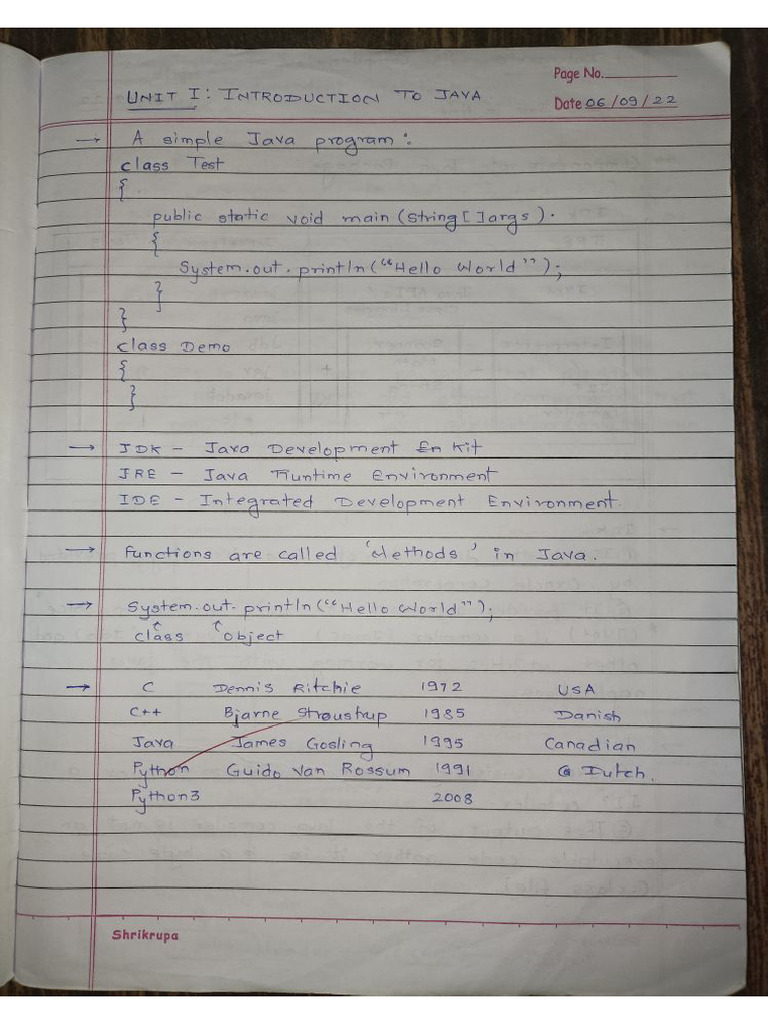 Page No.
UNIT I: INTRODUCTION TO JAVA
Date 06/09/22
→ A simple Java program:
class Test
{
public static void main (String[]args).
{
System.out.println(“Hello World”);
}
}
class Demo
{
}
→ JDK – Java Development En Kit
JRE – Java Runtime Environment
IDE – Integrated Development Environment.
→ Functions are called ‘Methods’ in Java.
→ System.out.println(“Hello World”);
↑ ↑
class object
→ C Dennis Ritchie 1972 USA
C++ Bjarne Stroustrup 1985 Danish
Java James Gosling 1995 Canadian
Python Guido Van Rossum 1991 Dutch.
Python3 2008
Shrikrupa